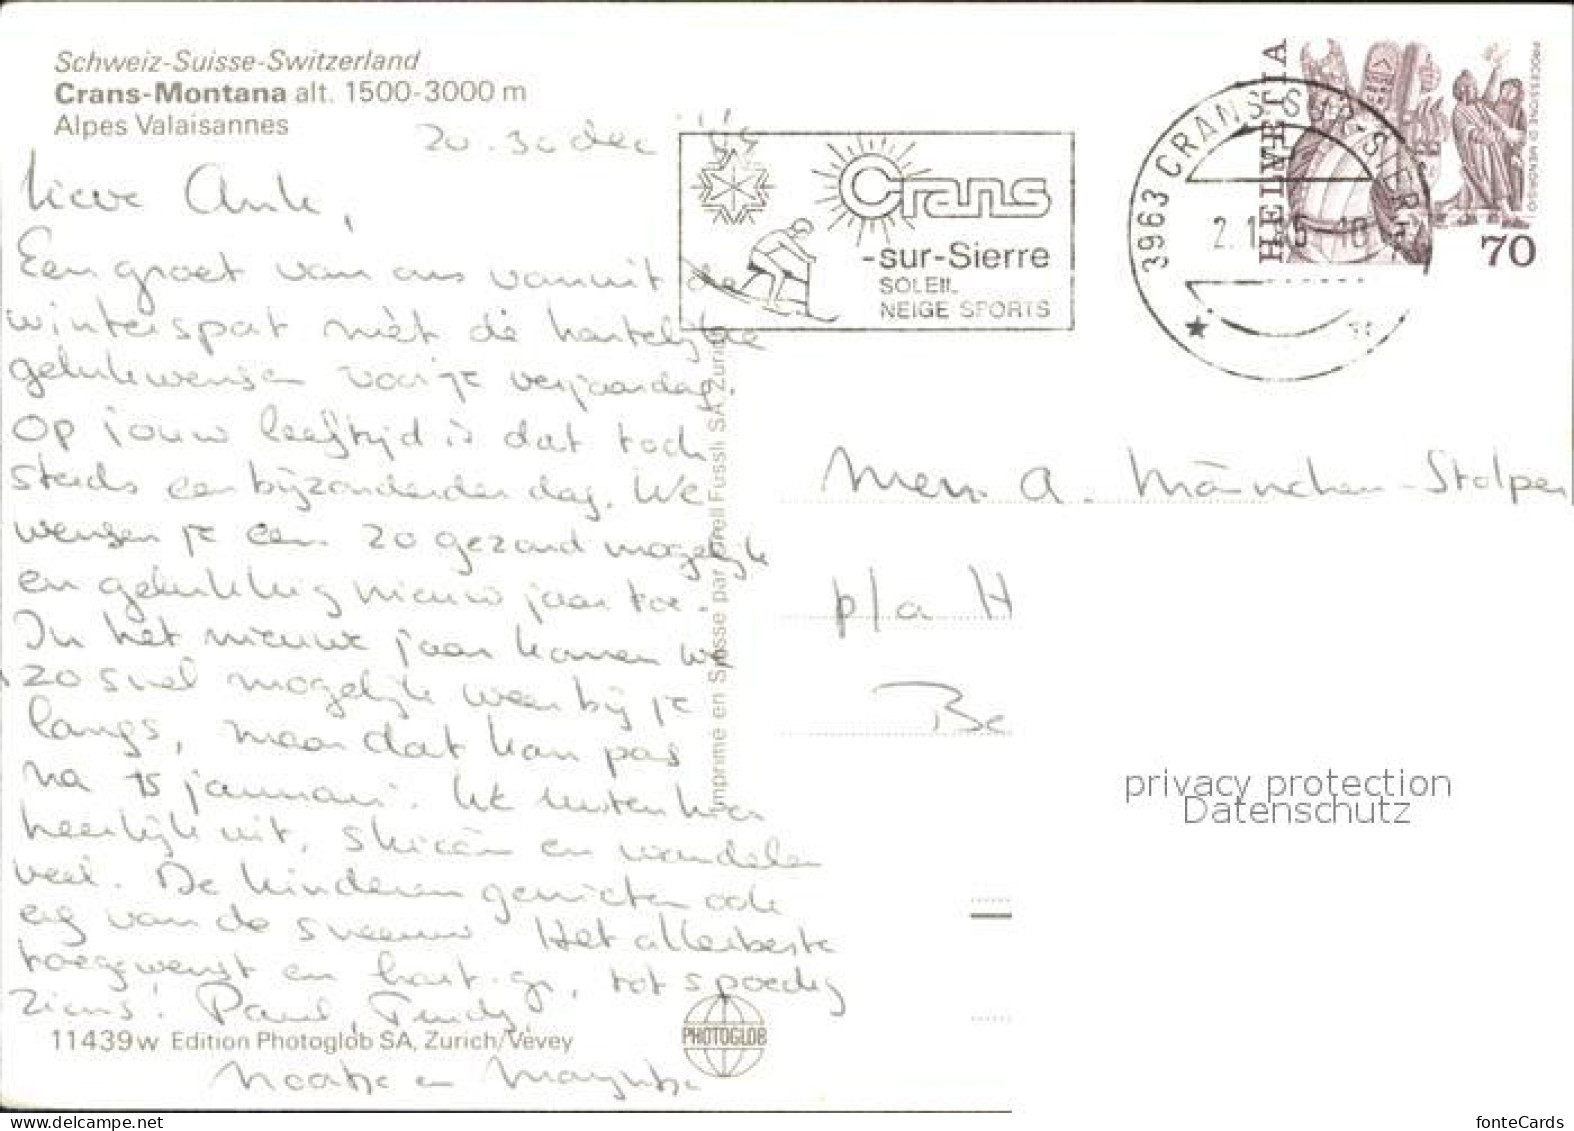 Schweiz-Suisse-Switzerland
Crans-Montana alt. 1500-3000 m
Alpes Valaisannes
20.30 dec
Lieve Ank,
Een groet van ons vanuit de
wintersport mèt de hartelijke
gelukwensen voor je verjaardag.
Op jouw leeftijd is dat toch
steeds een bijzonderder dag. We
wensen je een zo gezond mogelijk
en gelukkig nieuw jaar toe.
In het nieuwe jaar komen we
zo snel mogelijk weer bij je
langs, maar dat kan pas
na 15 januari. We rusten hier
heerlijk uit, skieën en wandelen
veel. De kinderen genieten ook
erg van de sneeuw. Het allerbeste
toegewenst en hart. gr, tot spoedig
ziens! Paul, Trudy
11439w Edition Photoglob SA, Zurich/Vevey
en
PHOTOGLOB
Imprimé en Suisse par Orell Füssli SA Zurich
Crans
-sur-Sierre
SOLEIL
NEIGE SPORTS
3963 CRANS-SUR-SIERRE
HELVETIA
PROCESSIONE DI MENDRISIO
70
Mevr. A. Männchen-Stolper
p/a H
Be
privacy protection
Datenschutz
fonteCards